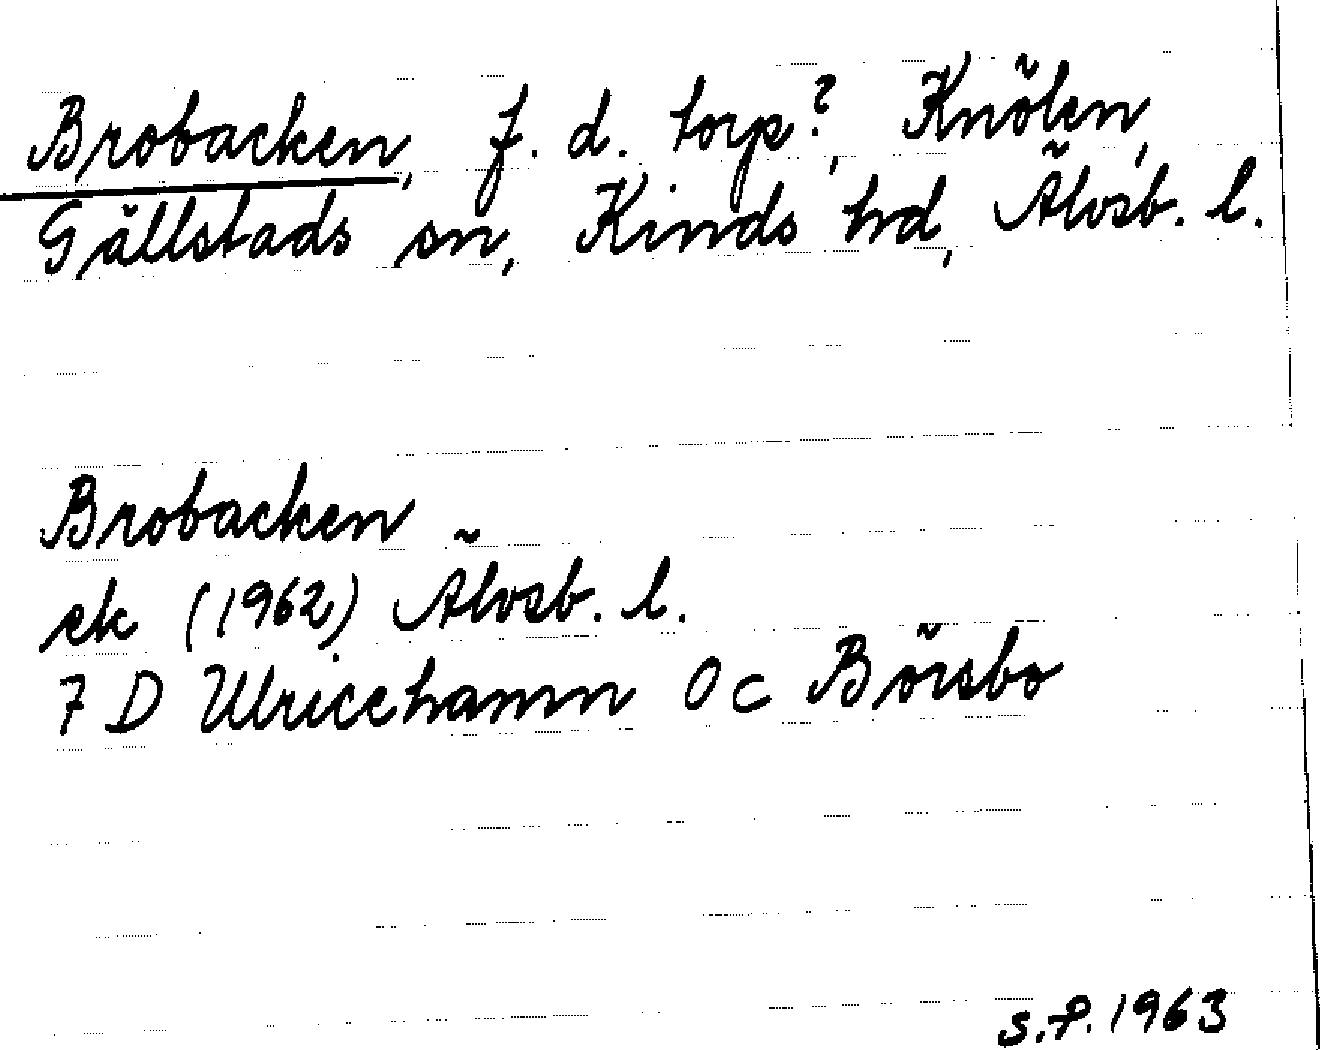 Brobacken, f. d. torp?, Knölen,
Gällstads sn, Kinds hd, Älvsb. l.
Brobacken
ek (1962) Älvsb. l.
7 D Ulricehamn 0 c Börsbo
S.P. 1963